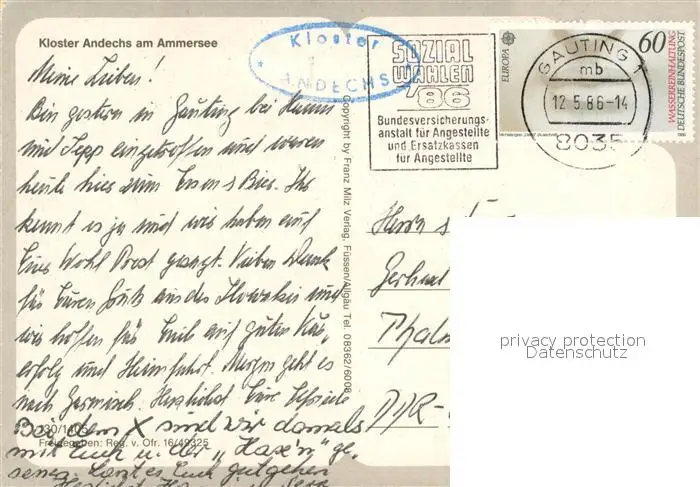 Kloster Andechs am Ammersee
Kloster
ANDECHS
SOZIAL
WAHLEN
'86
Bundesversicherungs-
anstalt für Angestellte
und Ersatzkassen
für Angestellte
EUROPA
60
WASSERREINHALTUNG
DEUTSCHE BUNDESPOST
GAUTING 1
mb
12.5.86-14
8035
Meine Lieben!
Bin gestern in Gauting bei Hanni
und Sepp eingetroffen und waren
heute hier zum Essen & Bier. Ihr
kennt es ja und wir haben auf
Euer Wohl Prost gesagt. Vielen Dank
für Euren Gruß aus der Slowakei und
wir hoffen für Emil auf guten
erfolg und Heimfahrt. Morgen geht es
nach Garmisch. Herzlichst Eure
Bei dem X sind wir damals
mit Euch u. der "Hax'n" ge-
sessen. Lasst es Euch gutgehen
Sepp
330/1405
Freigegeben: Reg. v. Ofr. 16/49325
Copyright by Franz Milz Verlag, Füssen/Allgäu Tel. 08362/6008
Herrn
Gerhard
DDR-
privacy protection
Datenschutz